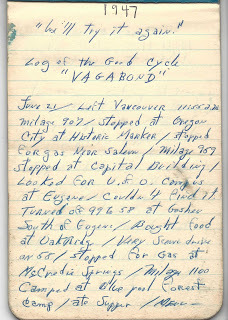 1947
"We'll try it again."
Log of the Good Cycle
"VAGABOND"
June 21 / Left Vancouver 11:55 A.M.
milage 907 / stopped at Oregon
City at Historic Marker / stopped
for gas Near Salem / Milage 957
stopped at Capital Building /
Looked for U. of O. Campus
at Eugene / Couldn't find it
Turned off 99 & 58 at Goshen
South of Eugene / Bought food
at Oakridge / Very scenic drive
on 58 / stopped for Gas at
McCredie Springs / Milage 1100
Camped at Blue pool Forest
Camp / ate Supper /